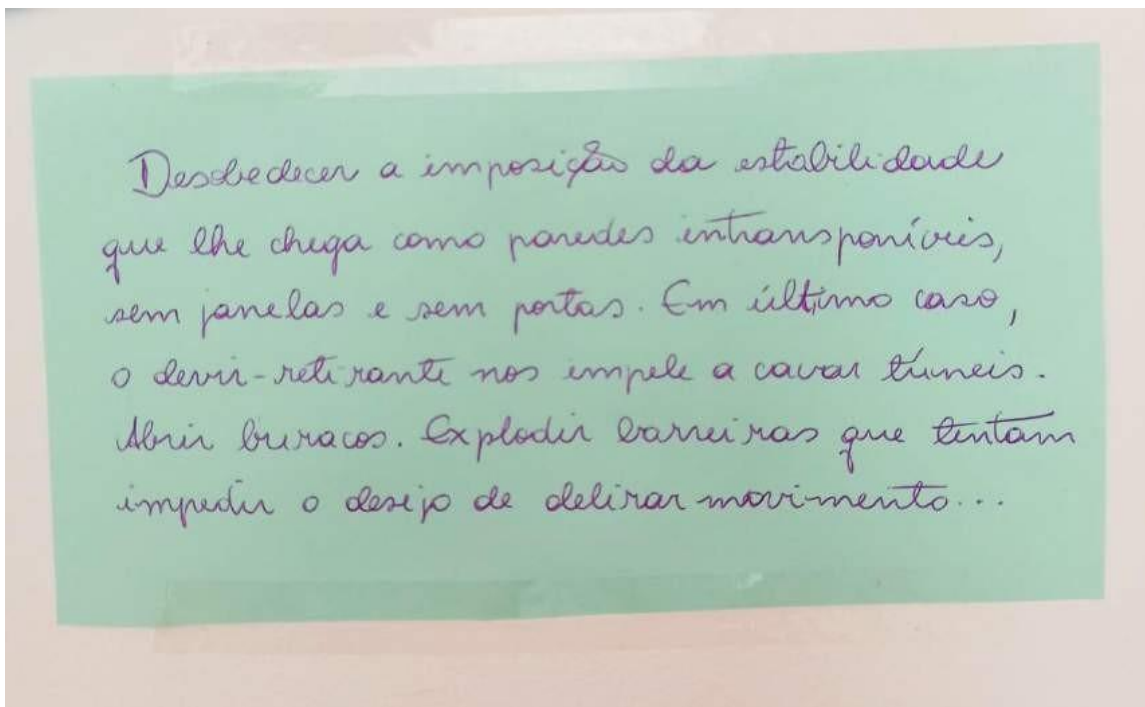 Desobedecer a imposição da estabilidade
que lhe chega como paredes intransponíveis,
sem janelas e sem portas. Em último caso,
o devir-retirante nos impele a cavar túneis.
Abrir buracos. Explodir barreiras que tentam
impedir o desejo de delirar movimento...